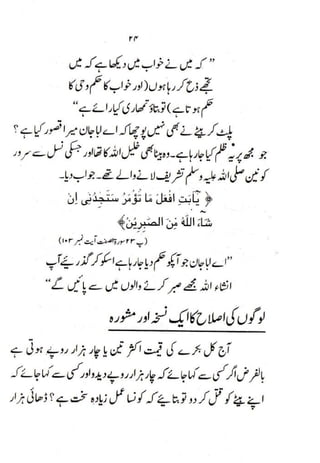 ۲۴
” کہ میں نے خواب میں دیکھا ہے کہ میں
تجھے ذبح کر رہا ہوں (اور خواب کا حکم وحی کا
حکم ہوتا ہے) تو بتاؤ تمھاری کیا رائے ہے“
پلٹ کر بیٹے نے بھی نہیں پوچھا کہ اے ابا جان میرا قصور کیا ہے؟
جو مجھ پر یہ ظلم کیا جا رہا ہے۔ وہ بیٹا بھی خلیل اللہ کا تھا اور جسکی نسل سے سرور
کونین صلی اللہ علیہ وسلم تشریف لانے والے تھے۔ جواب دیا۔
﴿ يٰٓاَبَتِ افْعَلْ مَا تُؤْمَرُ سَتَجِدُنِى اِنْ
شَآءَ اللهُ مِنَ الصّٰبِرِيْنَ ﴾
(پ ۲۳ سورۃ الصفت آیت نمبر ۱۰۳)
”اے ابا جان جو آپکو حکم دیا جا رہا ہے اسکو کر گذریئے آپ
انشاء اللہ مجھے صبر کرنے والوں میں سے پائیں گے“
لوگوں کی اصلاح کا ایک نسخہ اور مشورہ
آج کل بکرے کی قیمت اکثر تین یا چار ہزار روپے ہوتی ہے
بالفرض اگر کسی سے کہا جائے کہ چار ہزار روپے دیدو اور کسی سے کہا جائے کہ
اپنے بیٹے کو قتل کر دو تو بتائیے کہ کونسا عمل زیادہ سخت ہے؟ ڈھائی ہزار